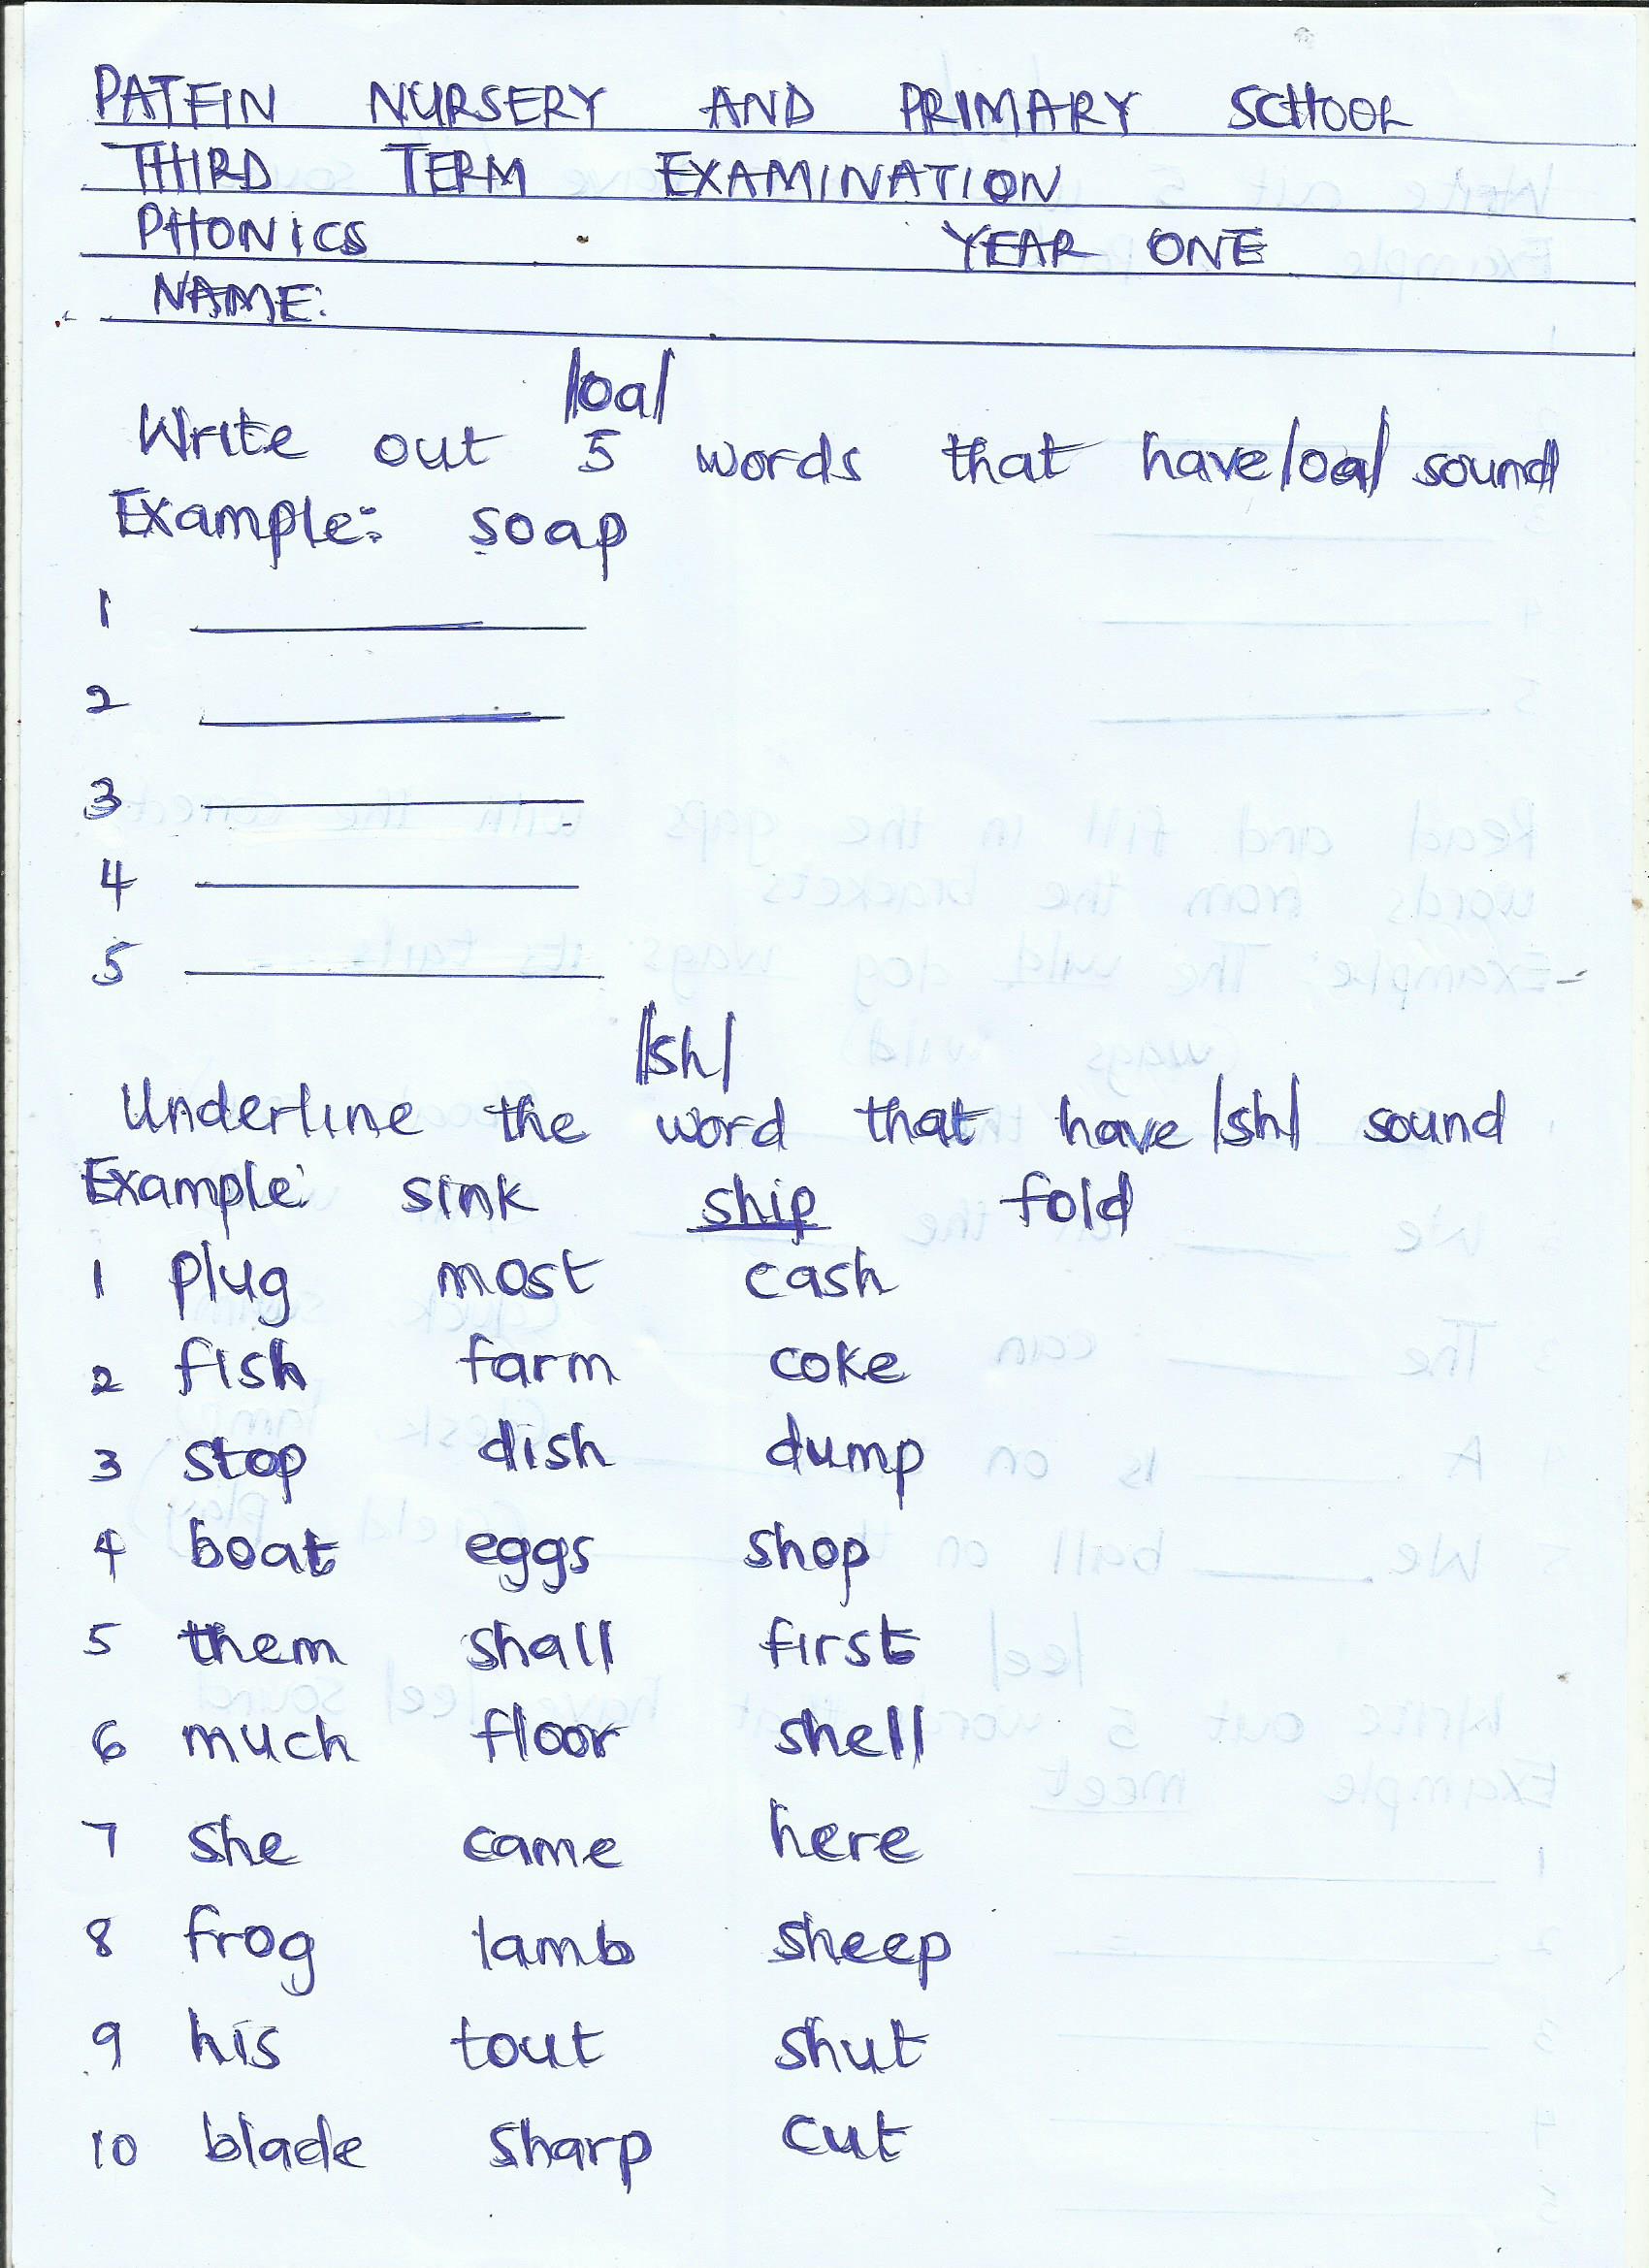 PATFIN NURSERY AND PRIMARY SCHOOL
THIRD TERM EXAMINATION
PHONICS YEAR ONE
NAME:
/oa/
Write out 5 words that have /oa/ sound
Example: soap
1
2
3
4
5
/sh/
Underline the word that have /sh/ sound
Example: sink ship fold
1 plug most cash
2 fish farm coke
3 stop dish dump
4 boat eggs shop
5 them shall first
6 much floor shell
7 she came here
8 frog lamb sheep
9 his tout shut
10 blade sharp cut